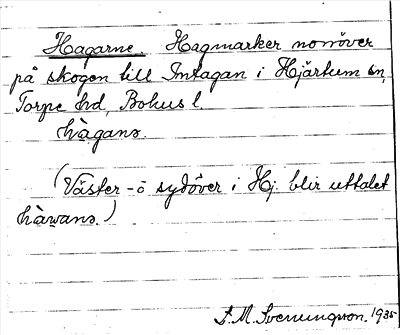 Hagarne. Hagmarker norröver
på skogen till Intagan i Hjärtum sn,
Torpe hd, Bohus l.
hàganɘ.
(Väster- ô sydöver i Hj. blir uttalet
hàwanɘ.)
S.M. Svenungsson. 1935